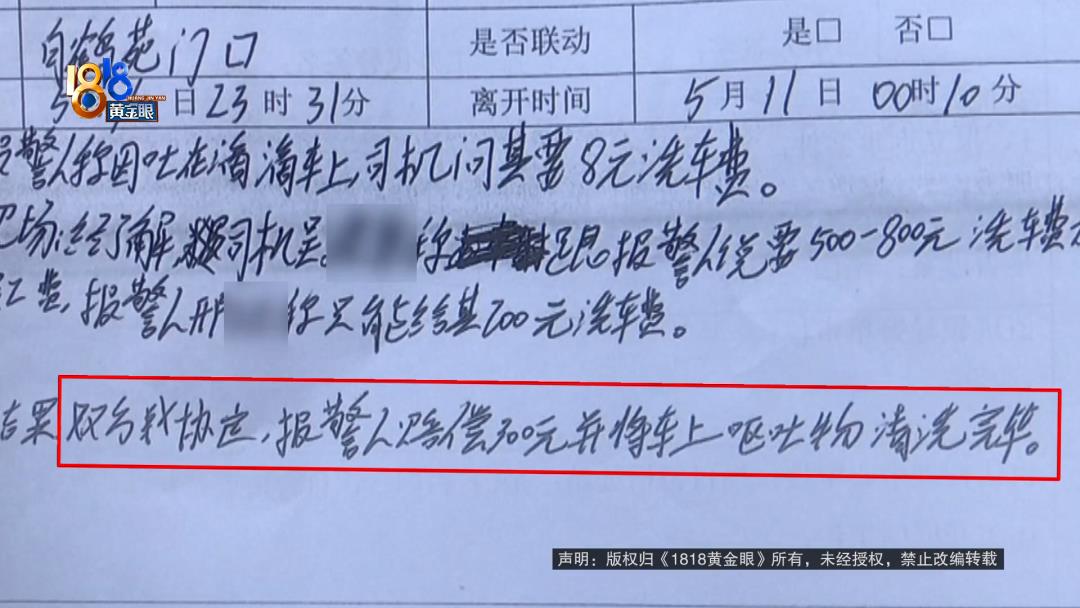 白鹤苑门口 是否联动 是□ 否□
5 日23时31分 离开时间 5月11日00时10分
1818
HUANG JIN YAN
黄金眼
警人称因吐在滴滴车上,司机问其要8元洗车费。
现场:经了解,司机吴 称 跟报警人说要500-800元洗车费
工费,报警人邢 称只能给其200元洗车费。
结果双方我协定,报警人赔偿300元并将车上呕吐物清洗完毕。
声明:版权归《1818黄金眼》所有,未经授权,禁止改编转载